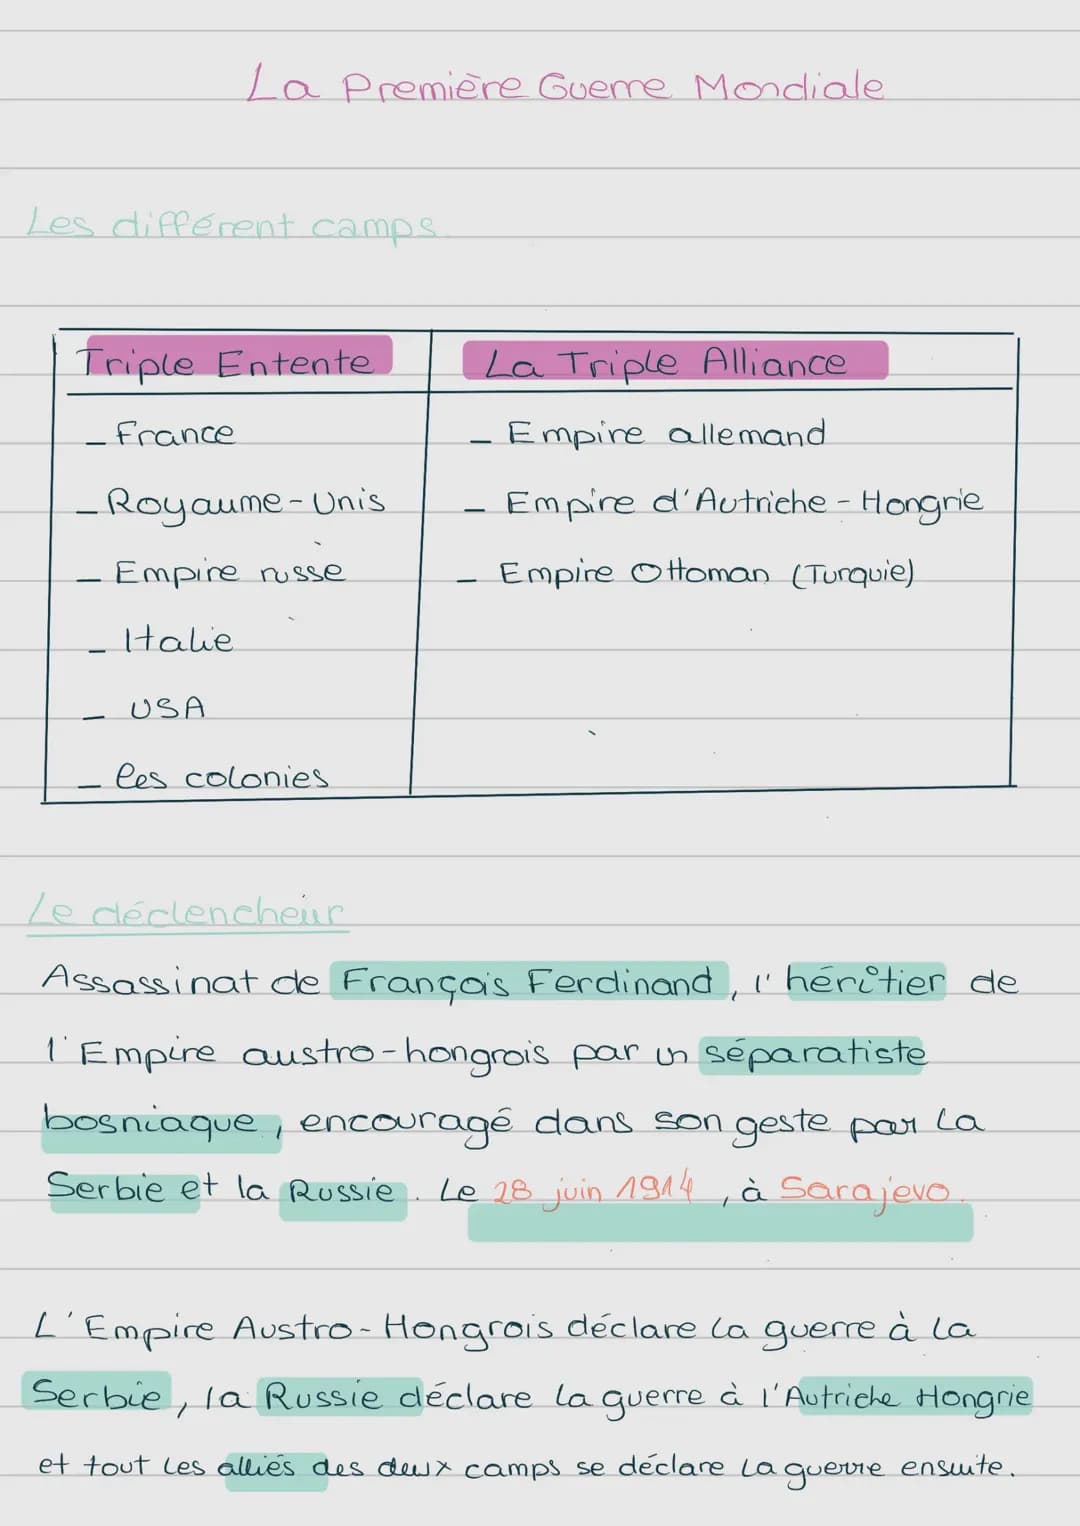 La Première Guerre Mondiale
Les différent camps.
Triple Entente
La Triple Alliance
– France
– Empire allemand
– Royaume-Unis
– Empire d'Autriche-Hongrie
– Empire russe
– Empire Ottoman (Turquie)
– Italie
– USA
– les colonies
Le déclencheur
Assassinat de François Ferdinand, l'héritier de
l'Empire austro-hongrois par un séparatiste
bosniaque, encouragé dans son geste par la
Serbie et la Russie. Le 28 juin 1914, à Sarajevo.
L'Empire Austro-Hongrois déclare la guerre à la
Serbie, la Russie déclare la guerre à l'Autriche Hongrie
et tout les alliés des deux camps se déclare la guerre ensuite.